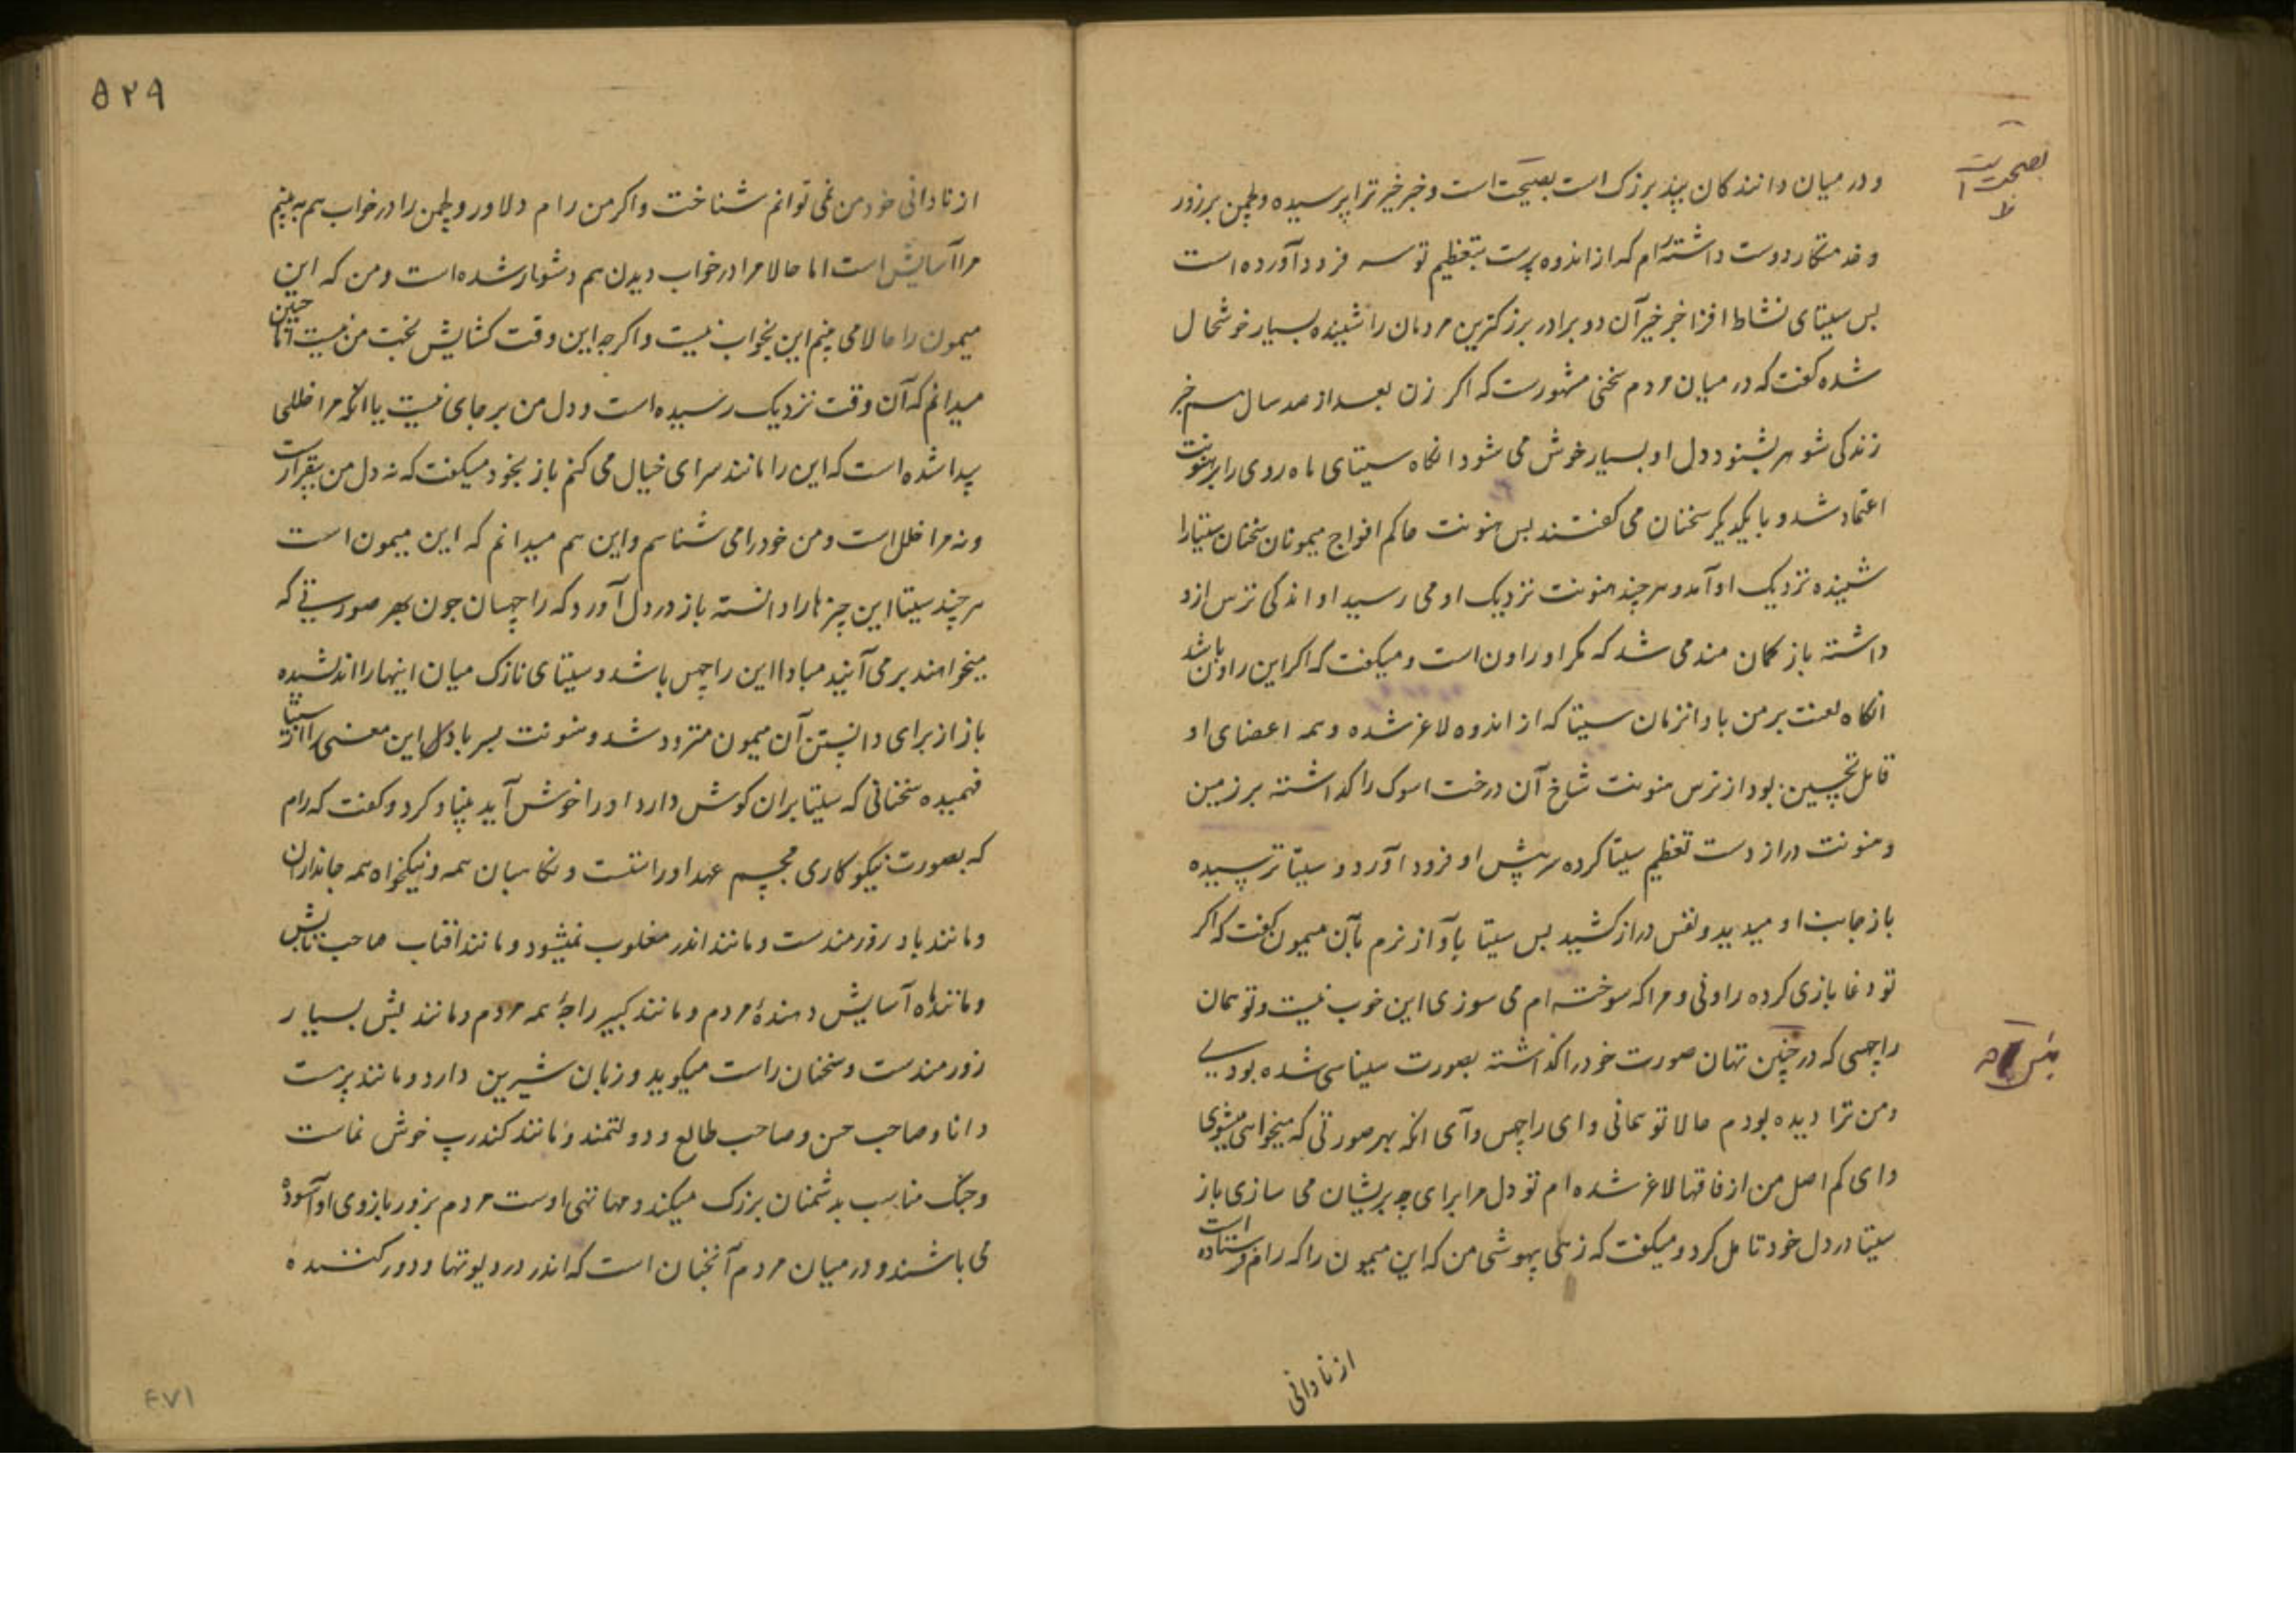 و در میان دانندکان بید بزرک است بصحت است و خبر خیر ترا پرسیده و لچمن پرزور
و خدمتکار دوست داشتهٔ رام که از اندوه پرست بتعظیم تو سر فرود آورده است
بس سیتای نشاط افزا خبر خیر آن دو برادر بزرکترین مردمان را شنیده بسیار خوشحال
شده کفت که در میان مردم سخنی مشهورست که اکر زن بعد از صد سال هم خبر
زندکی شوهر بشنود دل او بسیار خوش می شود انکاه سیتای ماه روی را بر هنونت
اعتماد شد و با یکدیکر سخنان می کفتند بس هنونت حاکم افواج میمونان سخنان سیتا را
شنیده نزدیک او آمد و هر چند هنونت نزدیک او می رسید او اندکی ترس ازو
داشته باز کمان مند می شد که مکر او راون است و میکفت که اکر این راون باشد
انکاه لعنت بر من باد انزمان سیتا که از اندوه لاغر شده و همه اعضای او
قابل تحسین بود از ترس هنونت شاخ آن درخت اسوک را کذاشته بر زمین
و هنونت دراز دست تعظیم سیتا کرده سر پیش او فرود آورد و سیتا ترسیده
باز جانب او میدید و نفس دراز کشید بس سیتا بآواز نرم بآن میمون کفت که اکر
تو دغا بازی کرده راونی و مرا که سوخته ام می سوزی این خوب نیست و تو همان
راچهسی که در چنین تهان صورت خود را کذاشته بصورت سیناسی شده بودی
و من ترا دیده بودم حالا تو همانی و ای راچهس و آی انکه بهر صورتی که میخواهی میشوی
و ای کم اصل من از فاقها لاغر شده ام تو دل مرا برای چه پریشان می سازی باز
سیتا در دل خود تامل کرد و میکفت که زهی بیهوشی من که این میمون را که رام فرستاده است
از نادانی
بصحت است
ظ
۵۲۹
از نادانی خود من نمی توانم شناخت و اکر من رام دلاور و لچمن را در خواب هم به بینم
مرا آسایش است اما حالا مرا در خواب دیدن هم دشوار شده است و من که این
میمون را حالا می بینم این بخواب نیست و اکرچه این وقت کشایش بخت من نیست اما چنین
میدانم که آن وقت نزدیک رسیده است و دل من بر جای نیست یا انکه مرا خللی
پیدا شده است که این را مانند سرای خیال می کنم باز بخود میکفت که نه دل من بیقرارست
و نه مرا خلل است و من خود را می شناسم و این هم میدانم که این میمون است
هر چند سیتا این چیزها را دانسته باز در دل آورد که راچهسان چون بهر صورتی که
میخواهند بر می آیند مبادا این راچهس باشد و سیتای نازک میان اینها را اندیشیده
باز از برای دانستن آن میمون متردد شد و هنونت پسر باد این معنی را از سیتا
فهمیده سخنانی که سیتا بران کوش دارد او را خوش آید بنیاد کرد و کفت که رام
که بصورت نیکوکاری مجسم عهد او راستست و نکاهبان همه و نیکخواه همه جانداران
و مانند باد زورمندست و مانند اندر مغلوب نمیشود و مانند افتاب صاحب تابش
و مانند ماه آسایش دهندهٔ مردم و مانند کبیر راجهٔ همه مردم و مانند بشن بسیار
زورمندست و سخنان راست میکوید و زبان شیرین دارد و مانند برهست
دانا و صاحب حسن و صاحب طالع و دولتمند و مانند کندرپ خوش نماست
و جنک مناسب بدشمنان بزرک میکند و مهاتهی اوست مردم بزور بازوی او آسوده
می باشند و در میان مردم آنچنان است که اندر در دیوتها و دور کننده
۴۷۱